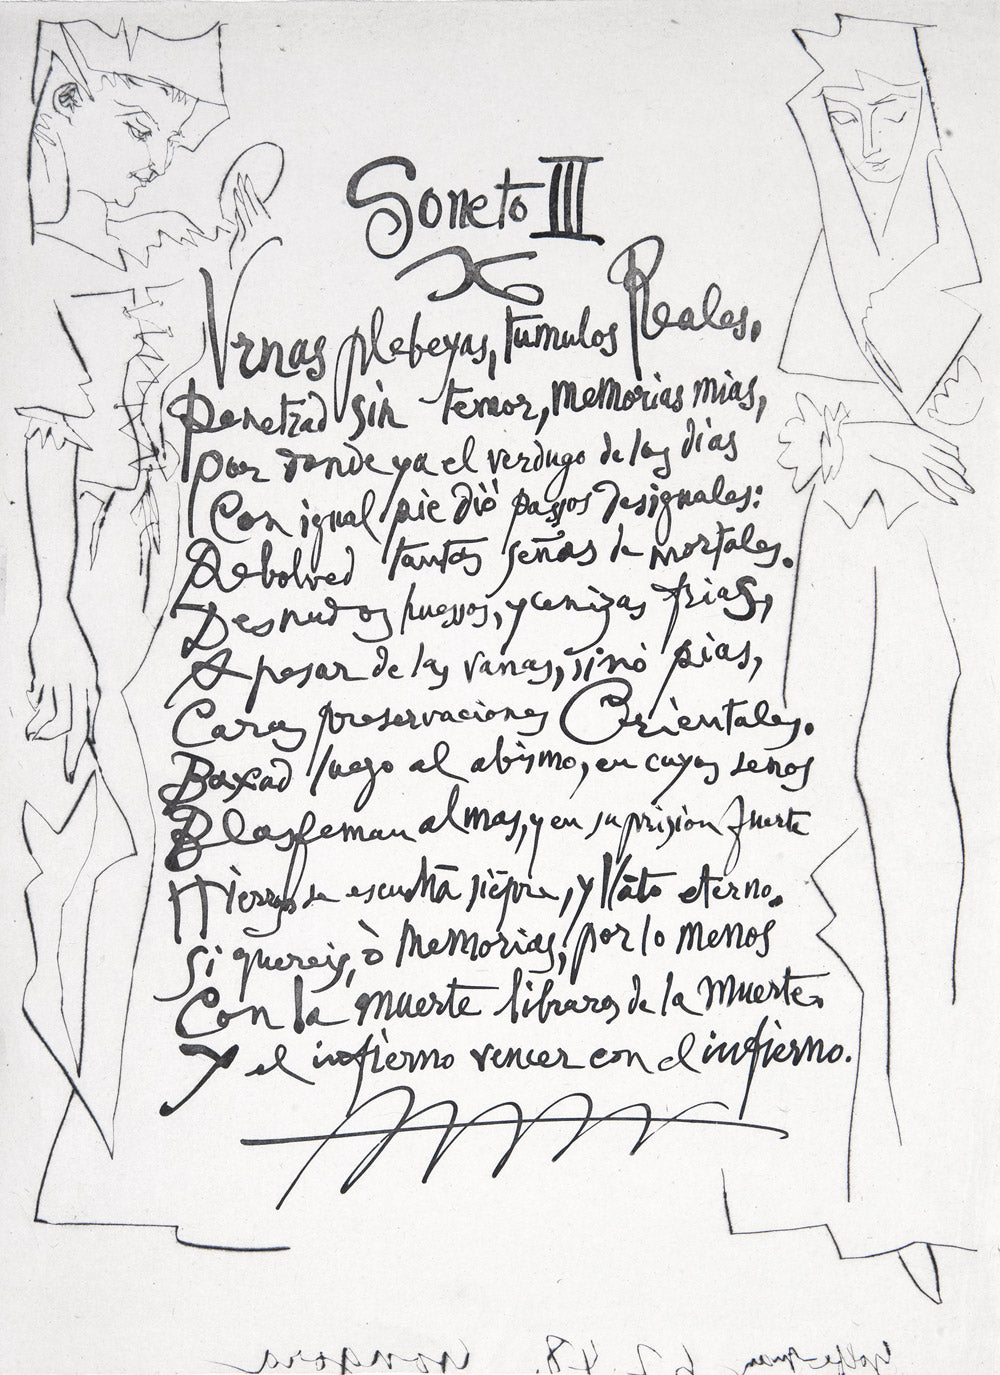 Soneto III
Vrnas plebeyas, tumulos Reales,
Penetrad sin temor, memorias mias,
por donde ya el verdugo de los dias
Con igual pie diò passos desiguales:
Rebolved tantas señas de mortales.
Desnudos huessos, y cenizas frias,
A pesar de las vanas, sinò pias,
Caras preservaciones Orientales.
Baxad luego al abismo, en cuyos senos
Blasfeman almas, y en su prision fuerte
Hierros se escuchã siẽpre, y llãto eterno.
Si quereis, ò memorias, por lo menos
Con la muerte libraros de la muerte.
Y el infierno vencer con el infierno.
2.48. Gongora